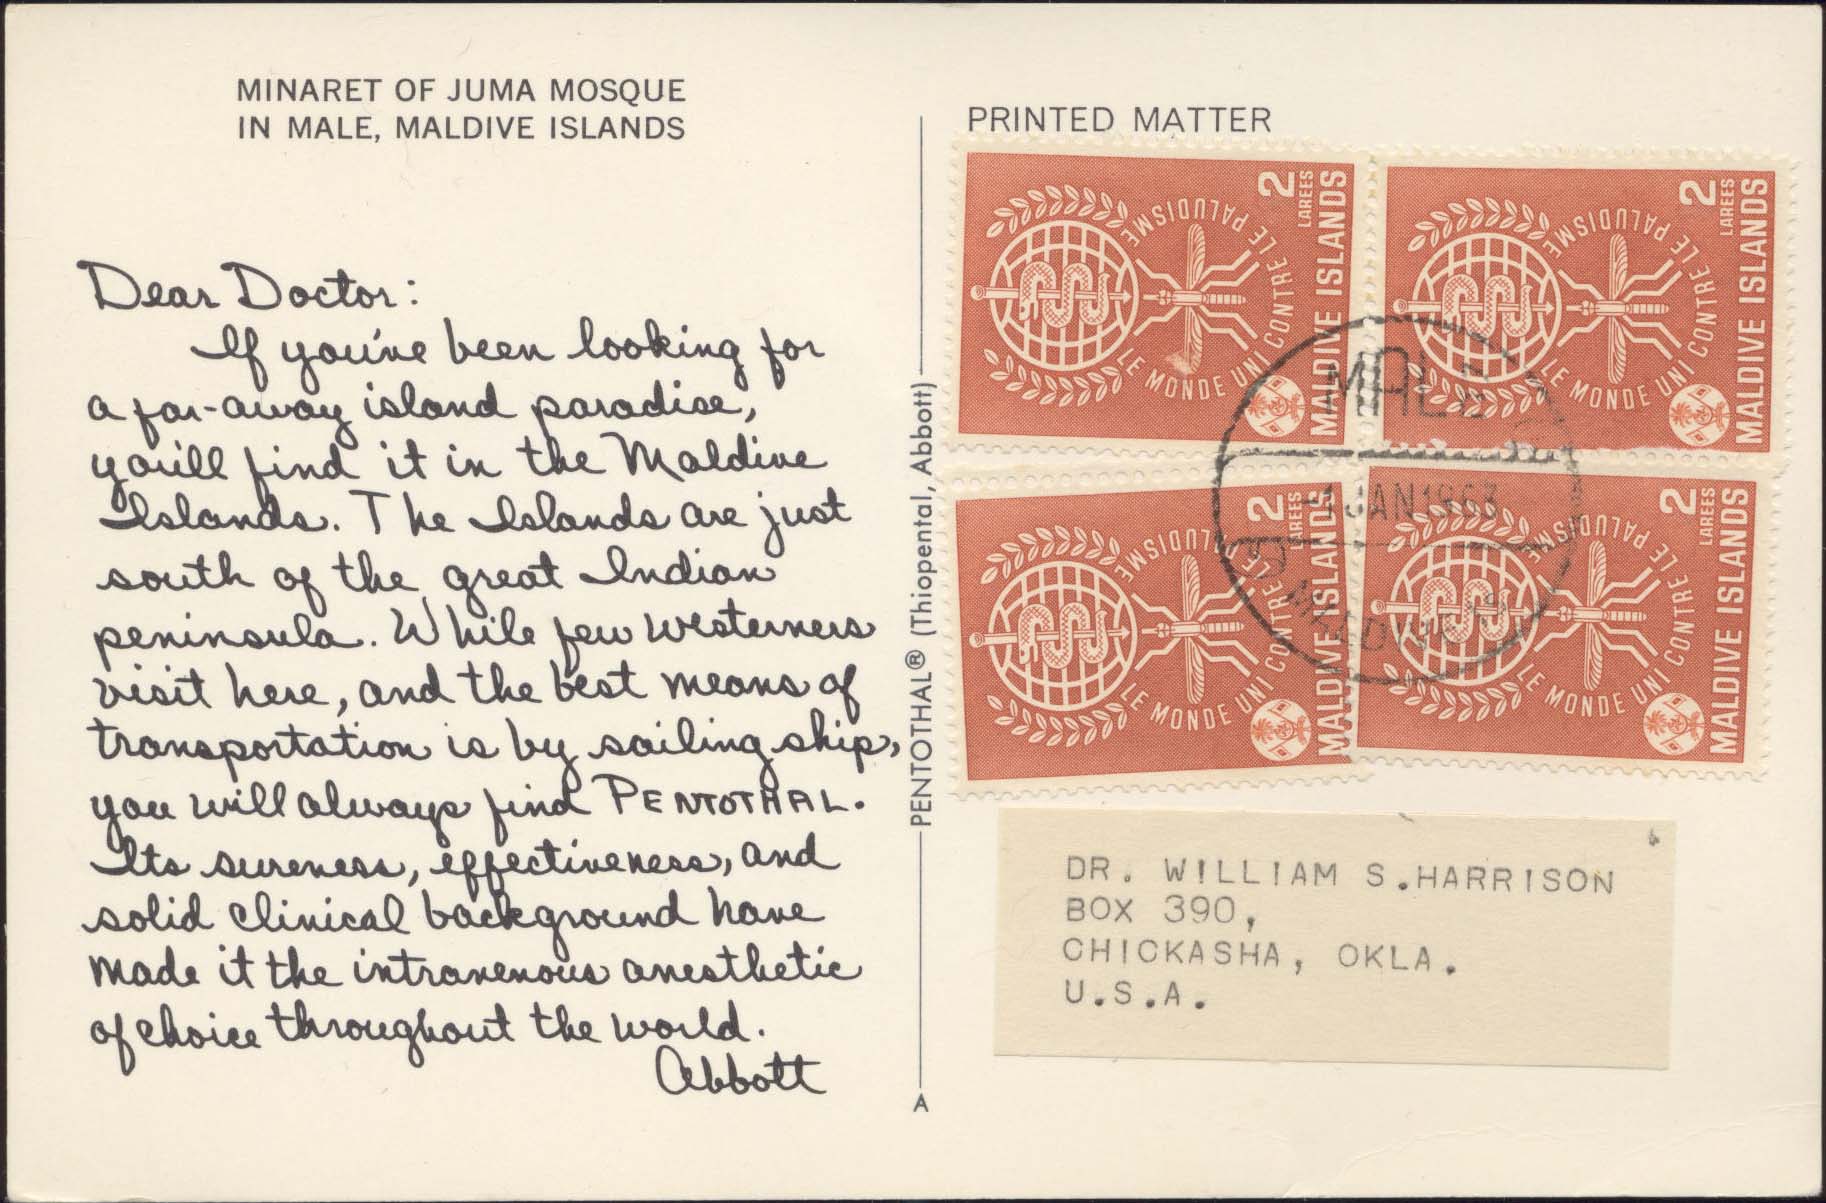 MINARET OF JUMA MOSQUE
IN MALE, MALDIVE ISLANDS
Dear Doctor:
If you've been looking for
a far-away island paradise,
you'll find it in the Maldive
Islands. The Islands are just
south of the great Indian
peninsula. While few westerners
visit here, and the best means of
transportation is by sailing ship,
you will always find PENTOTHAL.
Its sureness, effectiveness, and
solid clinical background have
made it the intravenous anesthetic
of choice throughout the world.
Abbott
PENTOTHAL® (Thiopental, Abbott)
A
PRINTED MATTER
2
LAREES
MALDIVE ISLANDS
LE MONDE UNI CONTRE LE PALUDISME
2
LAREES
MALDIVE ISLANDS
LE MONDE UNI CONTRE LE PALUDISME
2
LAREES
MALDIVE ISLANDS
LE MONDE UNI CONTRE LE PALUDISME
2
LAREES
MALDIVE ISLANDS
LE MONDE UNI CONTRE LE PALUDISME
MALE
-1 JAN 1963
DR. WILLIAM S.HARRISON
BOX 390,
CHICKASHA, OKLA.
U.S.A.